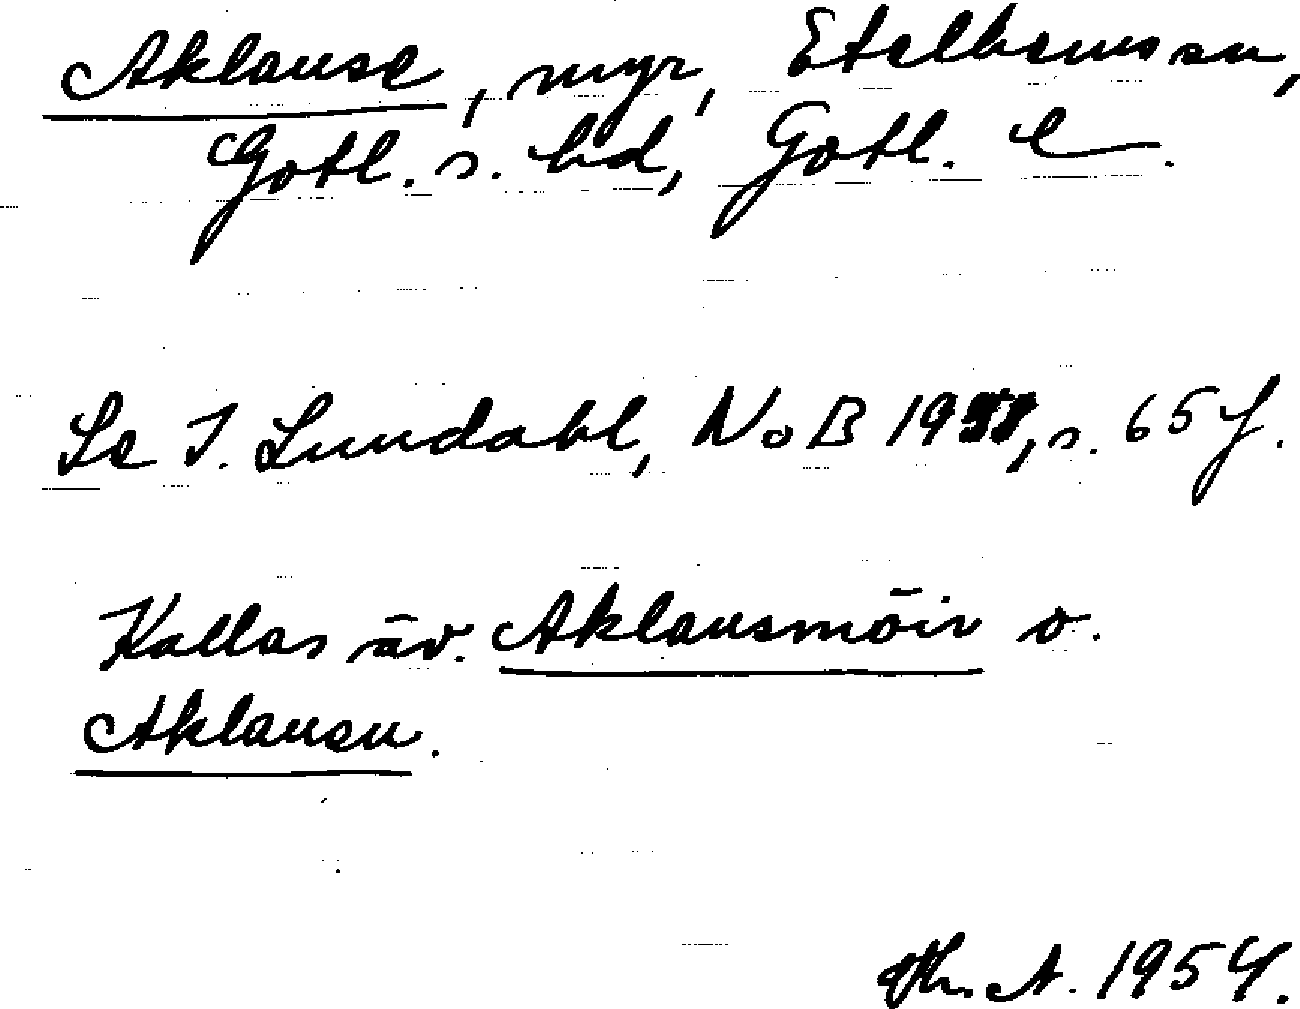 Aklause, myr, Etelhems sn,
Gotl. s. hd, Gotl. l.
Se I. Lundahl, NoB 1951, s. 65 f.
Kallas äv. Aklausmöir o.
Aklausen.
A. 1954.